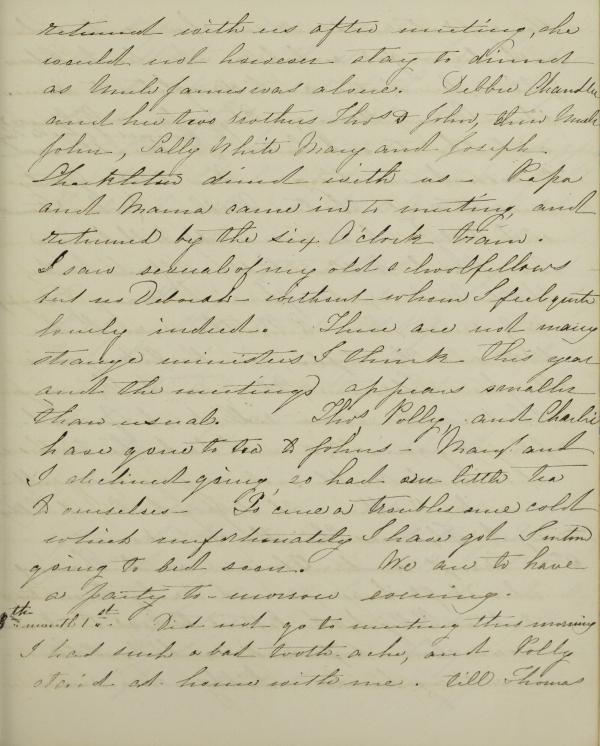 returned with us after meeting, she
would not however stay to dinner
as Uncle James was alone. Debbie Chandlee
and her two brothers Thos & John, their Uncle
John, Sally White Mary and Joseph
Shackleton dined with us - Papa
and Mama came in to meeting and
returned by the six O'clock train.
I saw several of my old schoolfellows
but no Deborah - without whom I feel quite
lonely indeed. There are not many
strange ministers I think this year
and the meetings appears smaller
than usual. Thos, Polly, and Charlie
have gone to tea to John's - Mary and
I declined going so had our little tea
to ourselves - To cure a troublesome cold
which unfortunately I have got I intend
going to bed soon. We are to have
a party to-morrow evening.
5th month 1st. Did not go to meeting this morning
I had such a bad tooth-ache, and Polly
staid at home with me. till Thomas